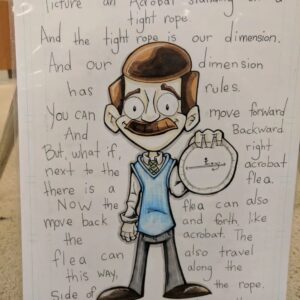 Picture an Acrobat standing on a
tight rope
And the tight rope is our dimension.
And our dimension
has rules.
You can move forward
And Backward
But, what if, right
next to the acrobat
there is a flea.
NOW the flea can also
move back and forth like
the acrobat. The
flea can also travel
this way, along the
Side of the rope.